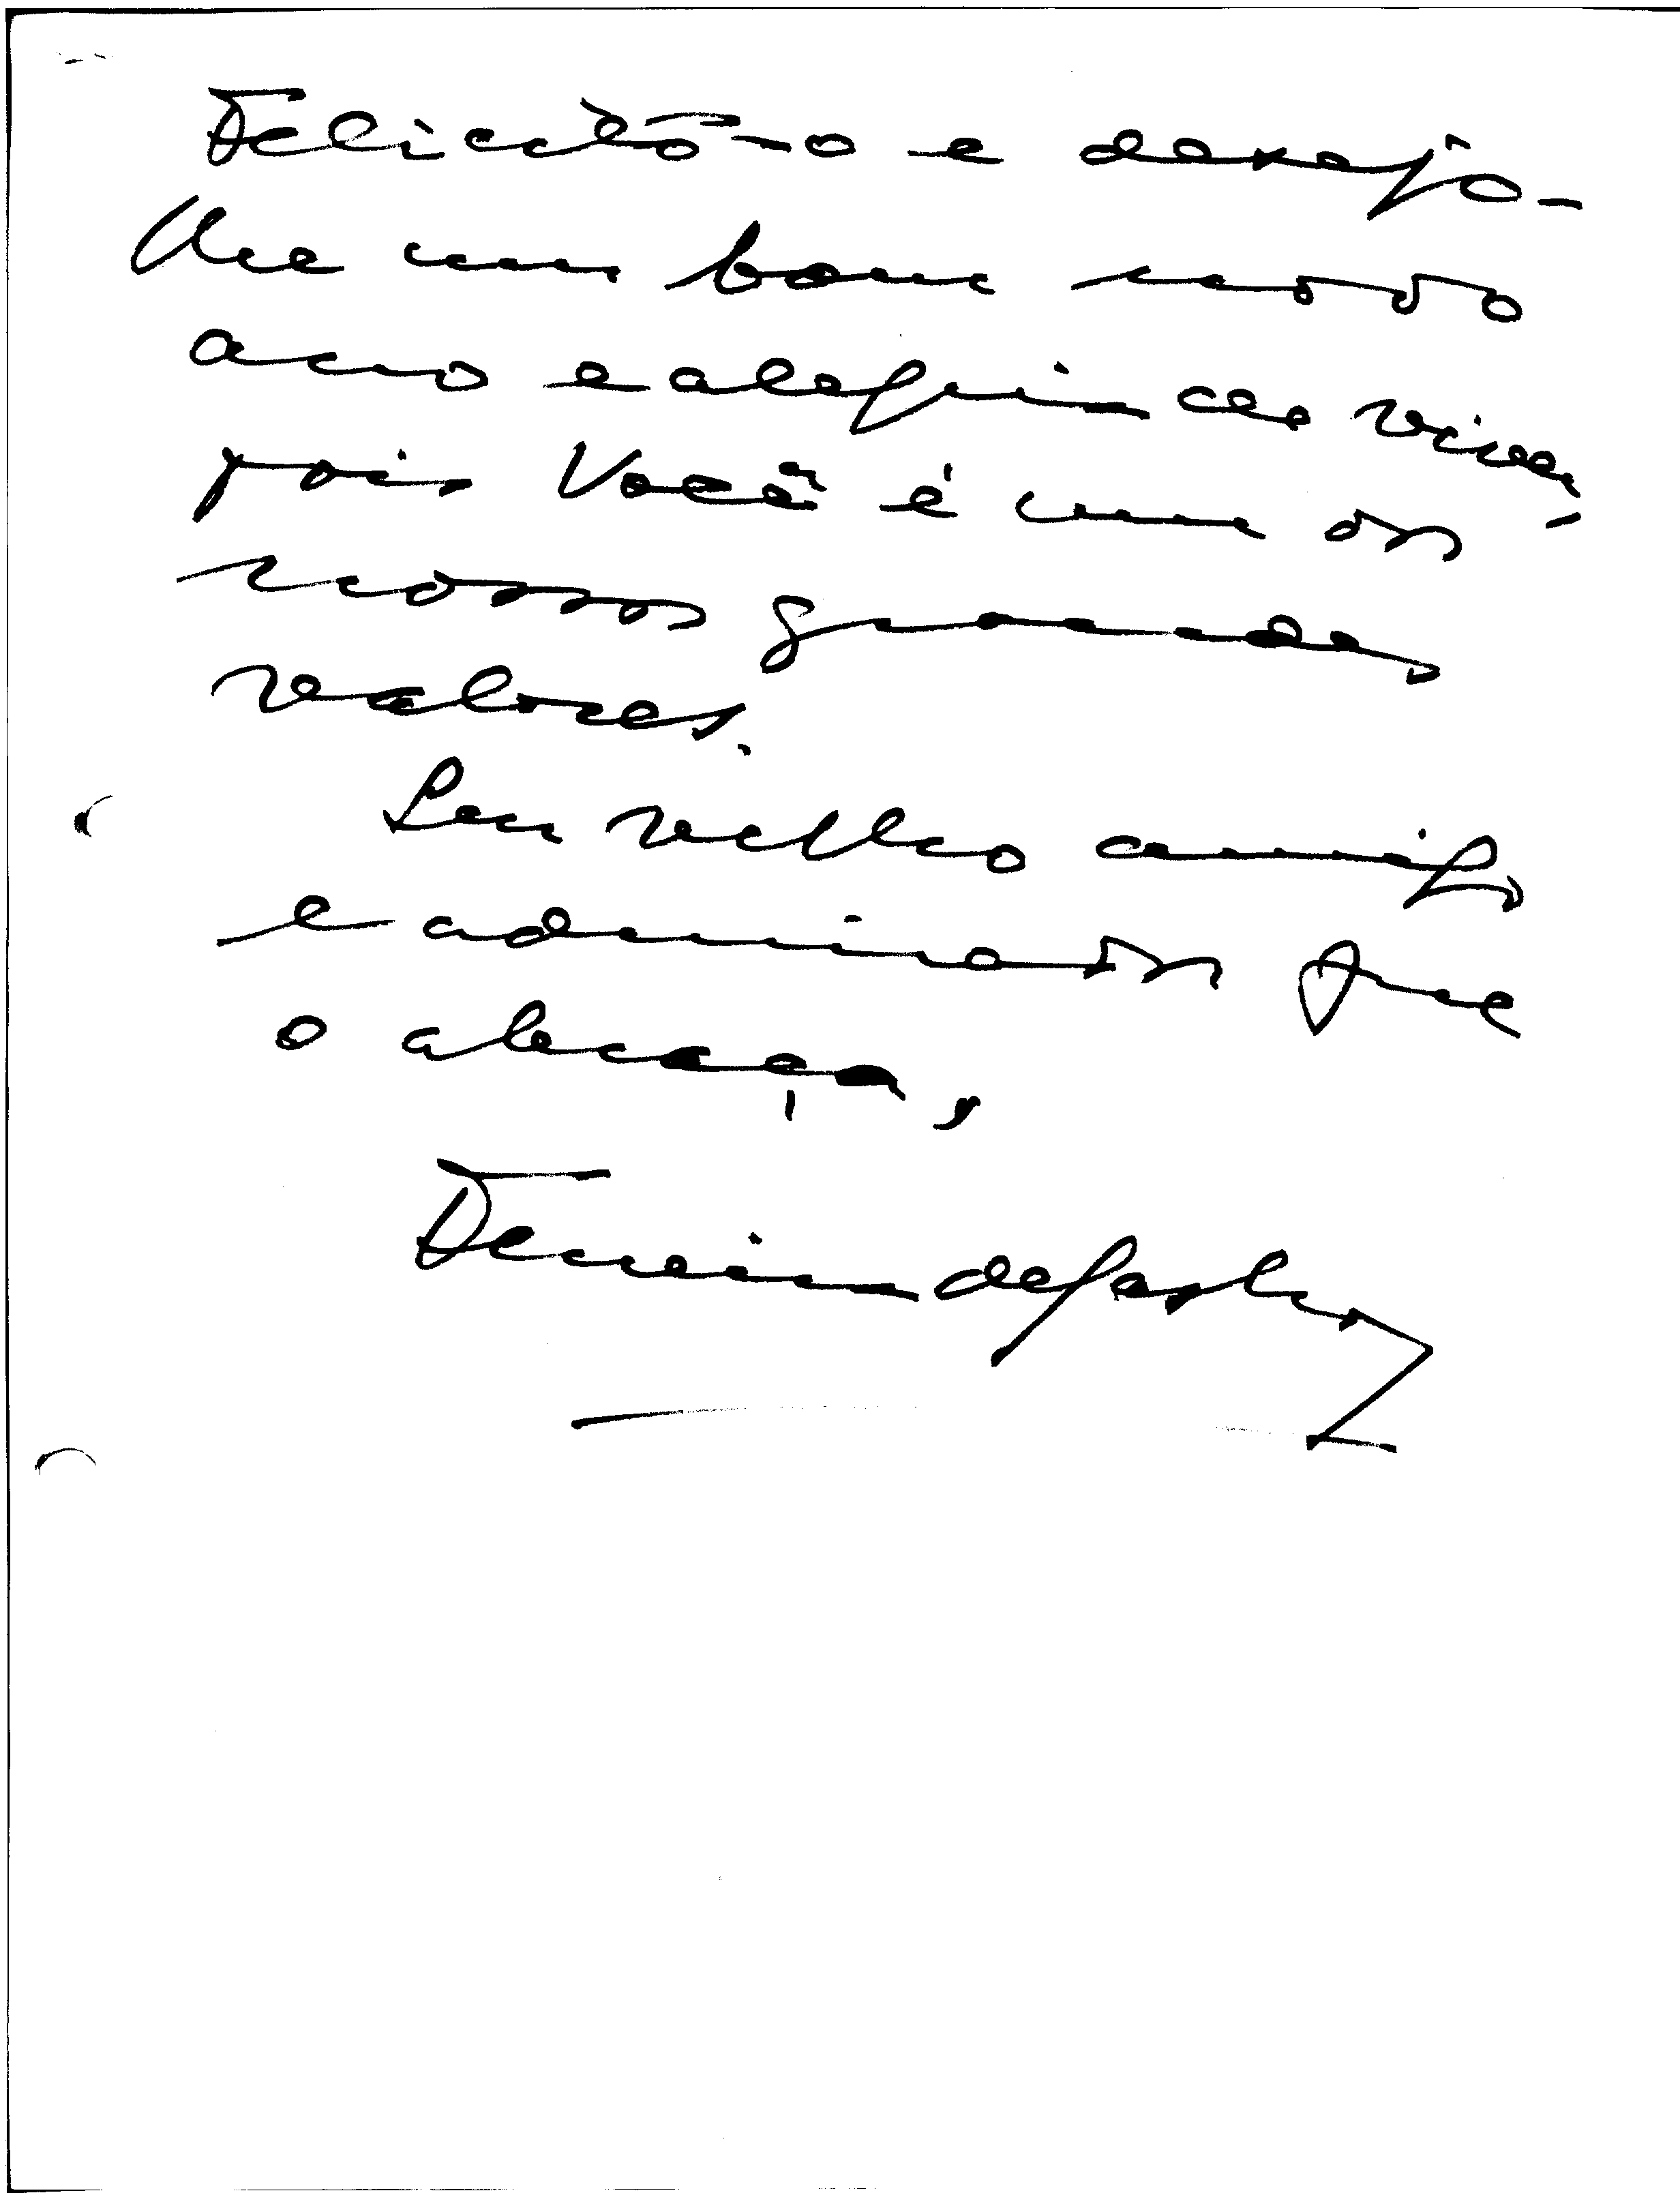 Felicito-o e desejo-
lhe um bom novo
ano e alegria de viver,
pois Você é um os
nossos grandes
valores.
Seu velho amigo
e admirador que
o abraça,